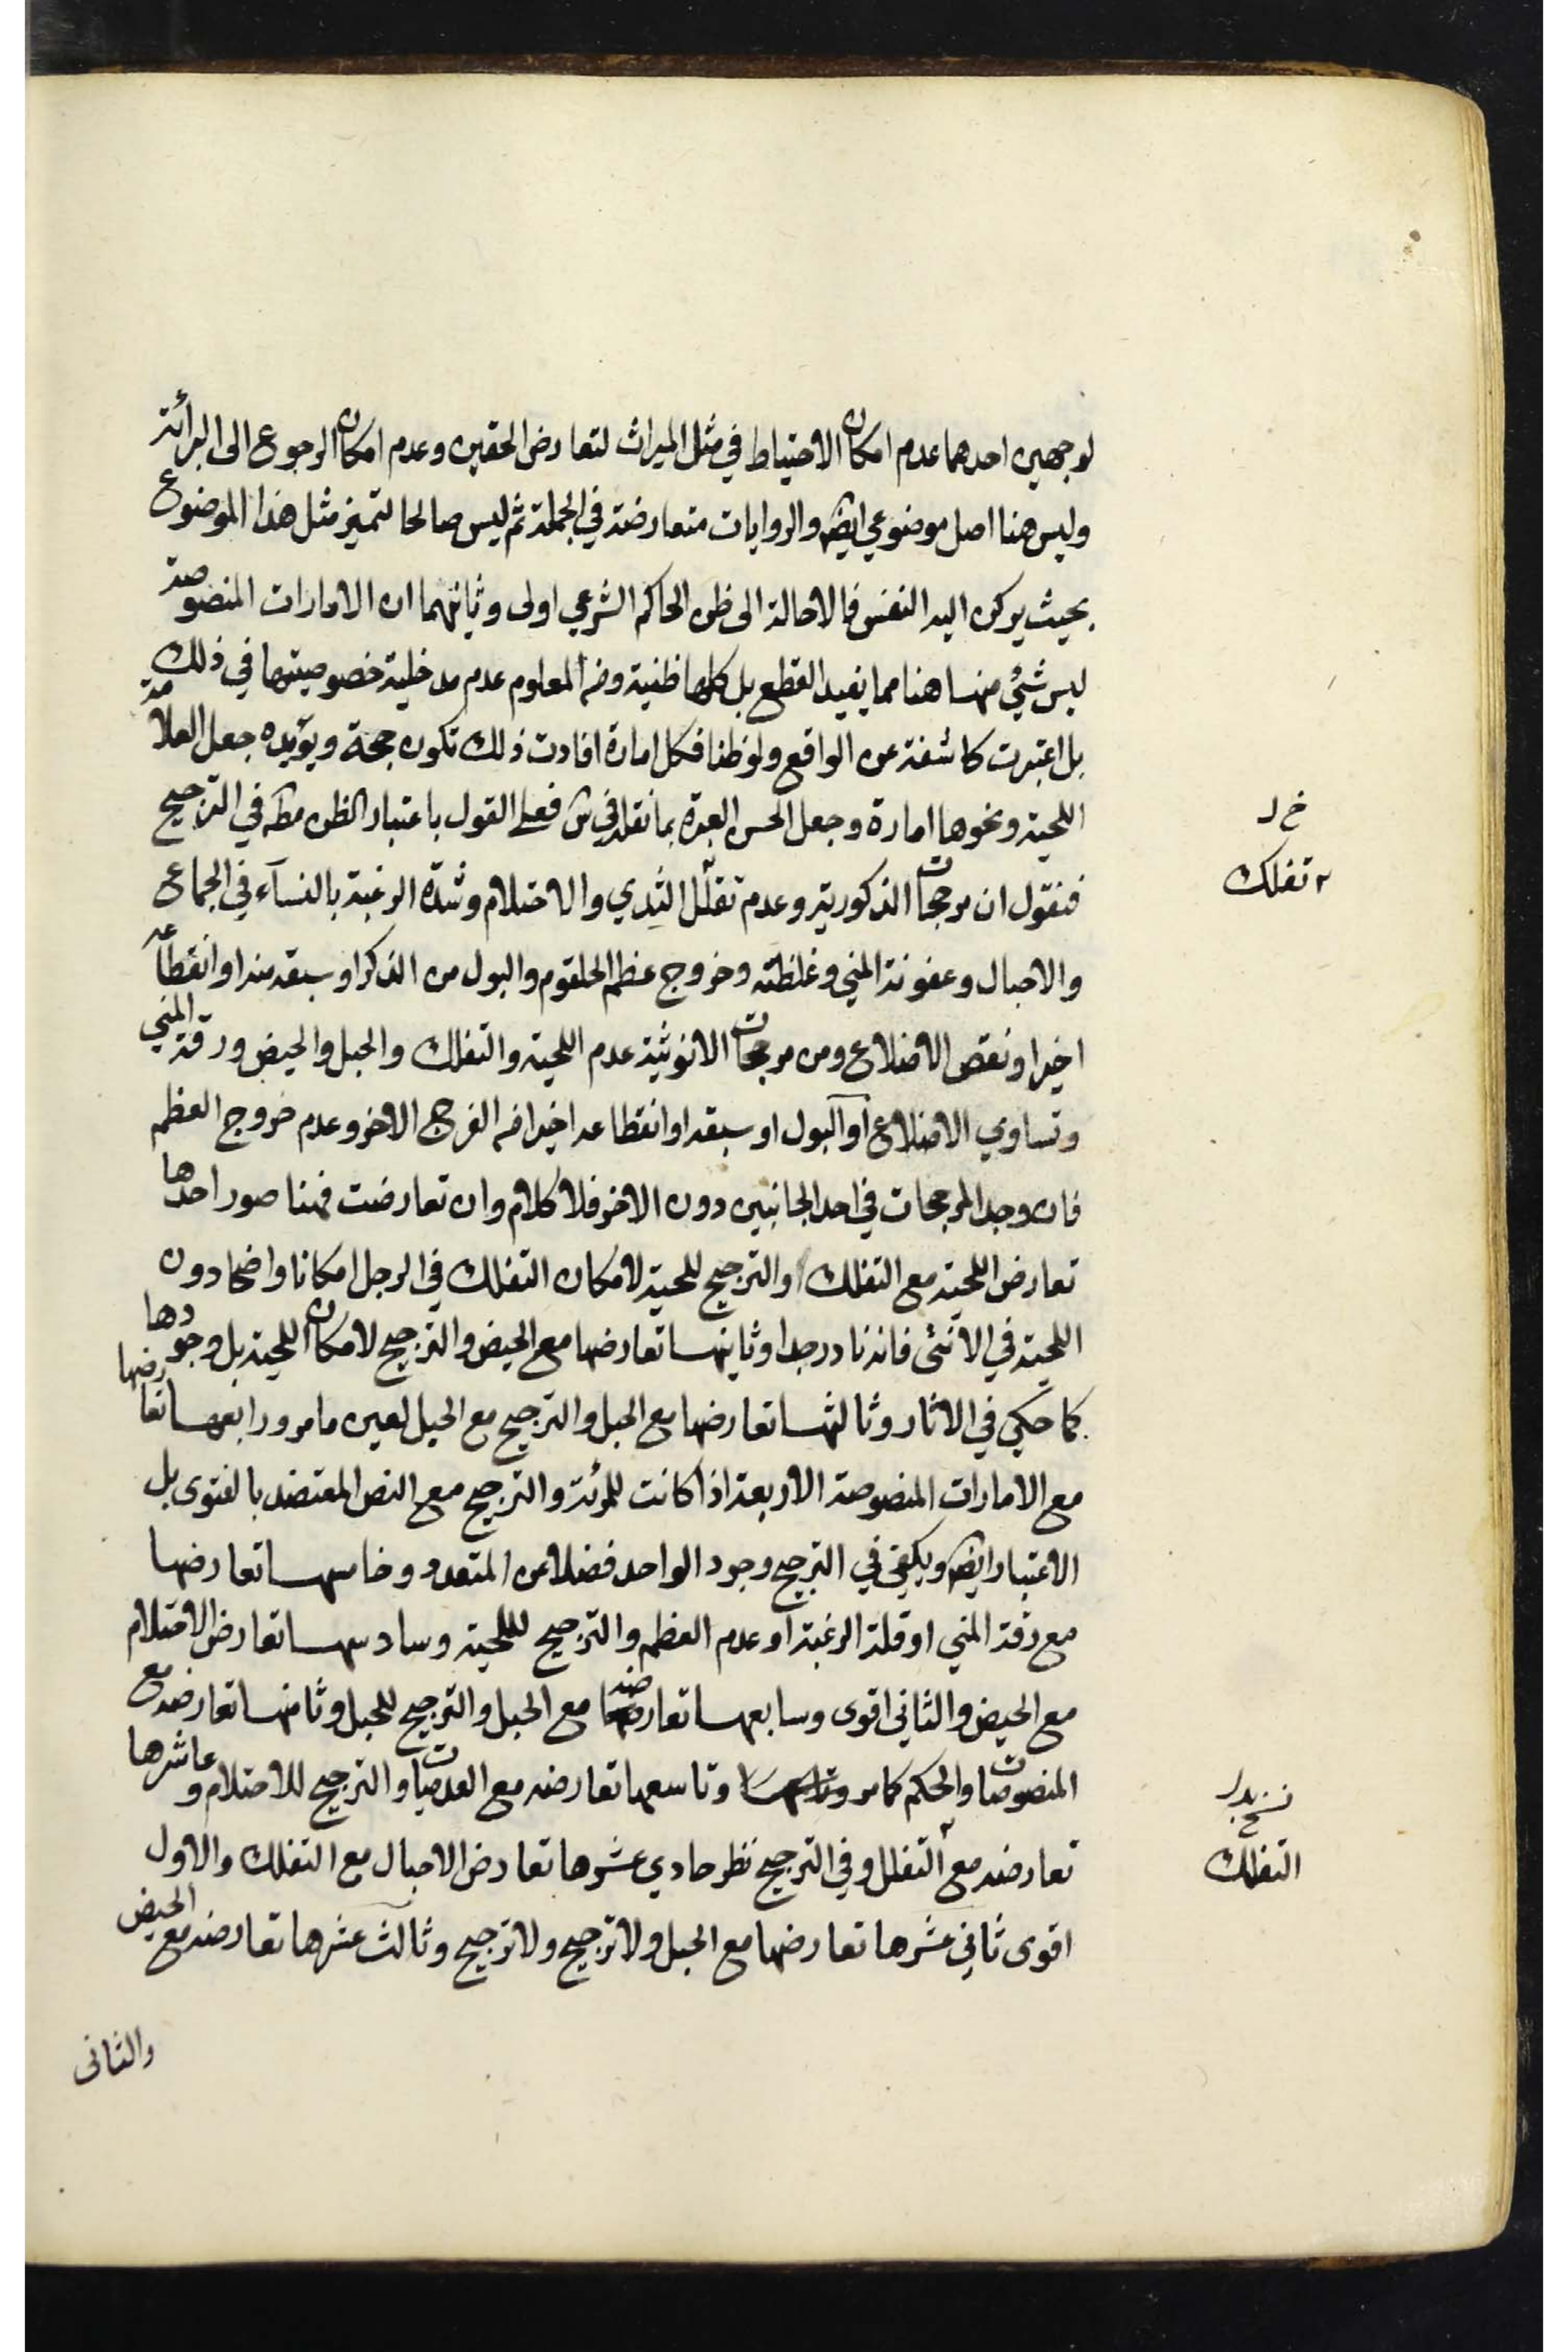 لوجهين احدهما عدم امكان الاحتياط في مثل الميراث لتعارض الحقين وعدم امكان الرجوع الى البرائة
وليس هنا اصل موضوعي ايضه والروايات متعارضة في الجملة ثم ليس صالحا لتميز مثل هذا الموضوع
بحيث يركن اليه النفس فالاحالة الى ظن الحاكم الشرعي اولى وثانيهما ان الامارات المنصوصة
ليس شيئ منها هنا مما يفيد القطع بل كلها ظنية ومن المعلوم عدم مدخلية خصوصيتها في ذلك
بل اعتبرت كاشفة عن الواقع ولو ظنا فكل امارة افادت ذلك تكون حجة ويؤيده جعل العلامة
اللحية ونحوها امارة وجعل الحسن العبرة بما نقله في ش فعلى القول باعتبار الظن مطه في الترجيح
خ ل
تفلك
فنقول ان مرجحات الذكورية وعدم تفلّل الثدي والاحتلام وشدة الرغبة بالنسآء في الجماع
والاحبال وعفونة المني وغلظته وخروج عظم الحلقوم والبول من الذكر او سبقه منه او انقطاعه
اخيرا ونقص الاضلاع ومن مرجحات الانوثية عدم اللحية والتفلك والحبل والحيض ورقة المني
وتساوي الاضلاع او البول او سبقه او انقطاعه اخيرا من الفرج الاخر وعدم خروج العظم
فان وجد المرجحات في احد الجانبين دون الاخر فلا كلام وان تعارضت فهنا صور احدها
تعارض اللحية مع التفلك والترجيح للحية لامكان التفلك في الرجل امكانا واضحا دون
اللحية في الانثى فانه نادر جدا وثانيها تعارضها مع الحيض والترجيح لامكان اللحية بل وجودها
كما حكي في الاثار وثالثها تعارضها مع الحبل والترجيح مع الحبل لعين ما مر ورابعها تعارضها
مع الامارات المنصوصة الاربعة اذا كانت للمرئة والترجيح مع النص المعتضد بالفتوى بل
الاعتبار ايضه ويكفي في الترجيح وجود الواحد فضلا عن المتعدد وخامسها تعارضها
مع رقة المني او قلة الرغبة او عدم العظم والترجيح لللحية وسادسها تعارض الاحتلام
مع الحيض والثاني اقوى وسابعها تعارضه مع الحبل والترجيح للحبل وثامنها تعارضه مع
المنصوصات والحكم كما مر وتاسعها تعارضه مع العدميات والترجيح للاحتلام وعاشرها
نسخ بدل
التفلك
تعارضه مع التفلل وفي الترجيح نظر حادي عشرها تعارض الاحبال مع التفلك والاول
اقوى ثاني عشرها تعارضها مع الحبل ولا ترجيح ولا ترجيح وثالث عشرها تعارضه مع الحيض
والثانى